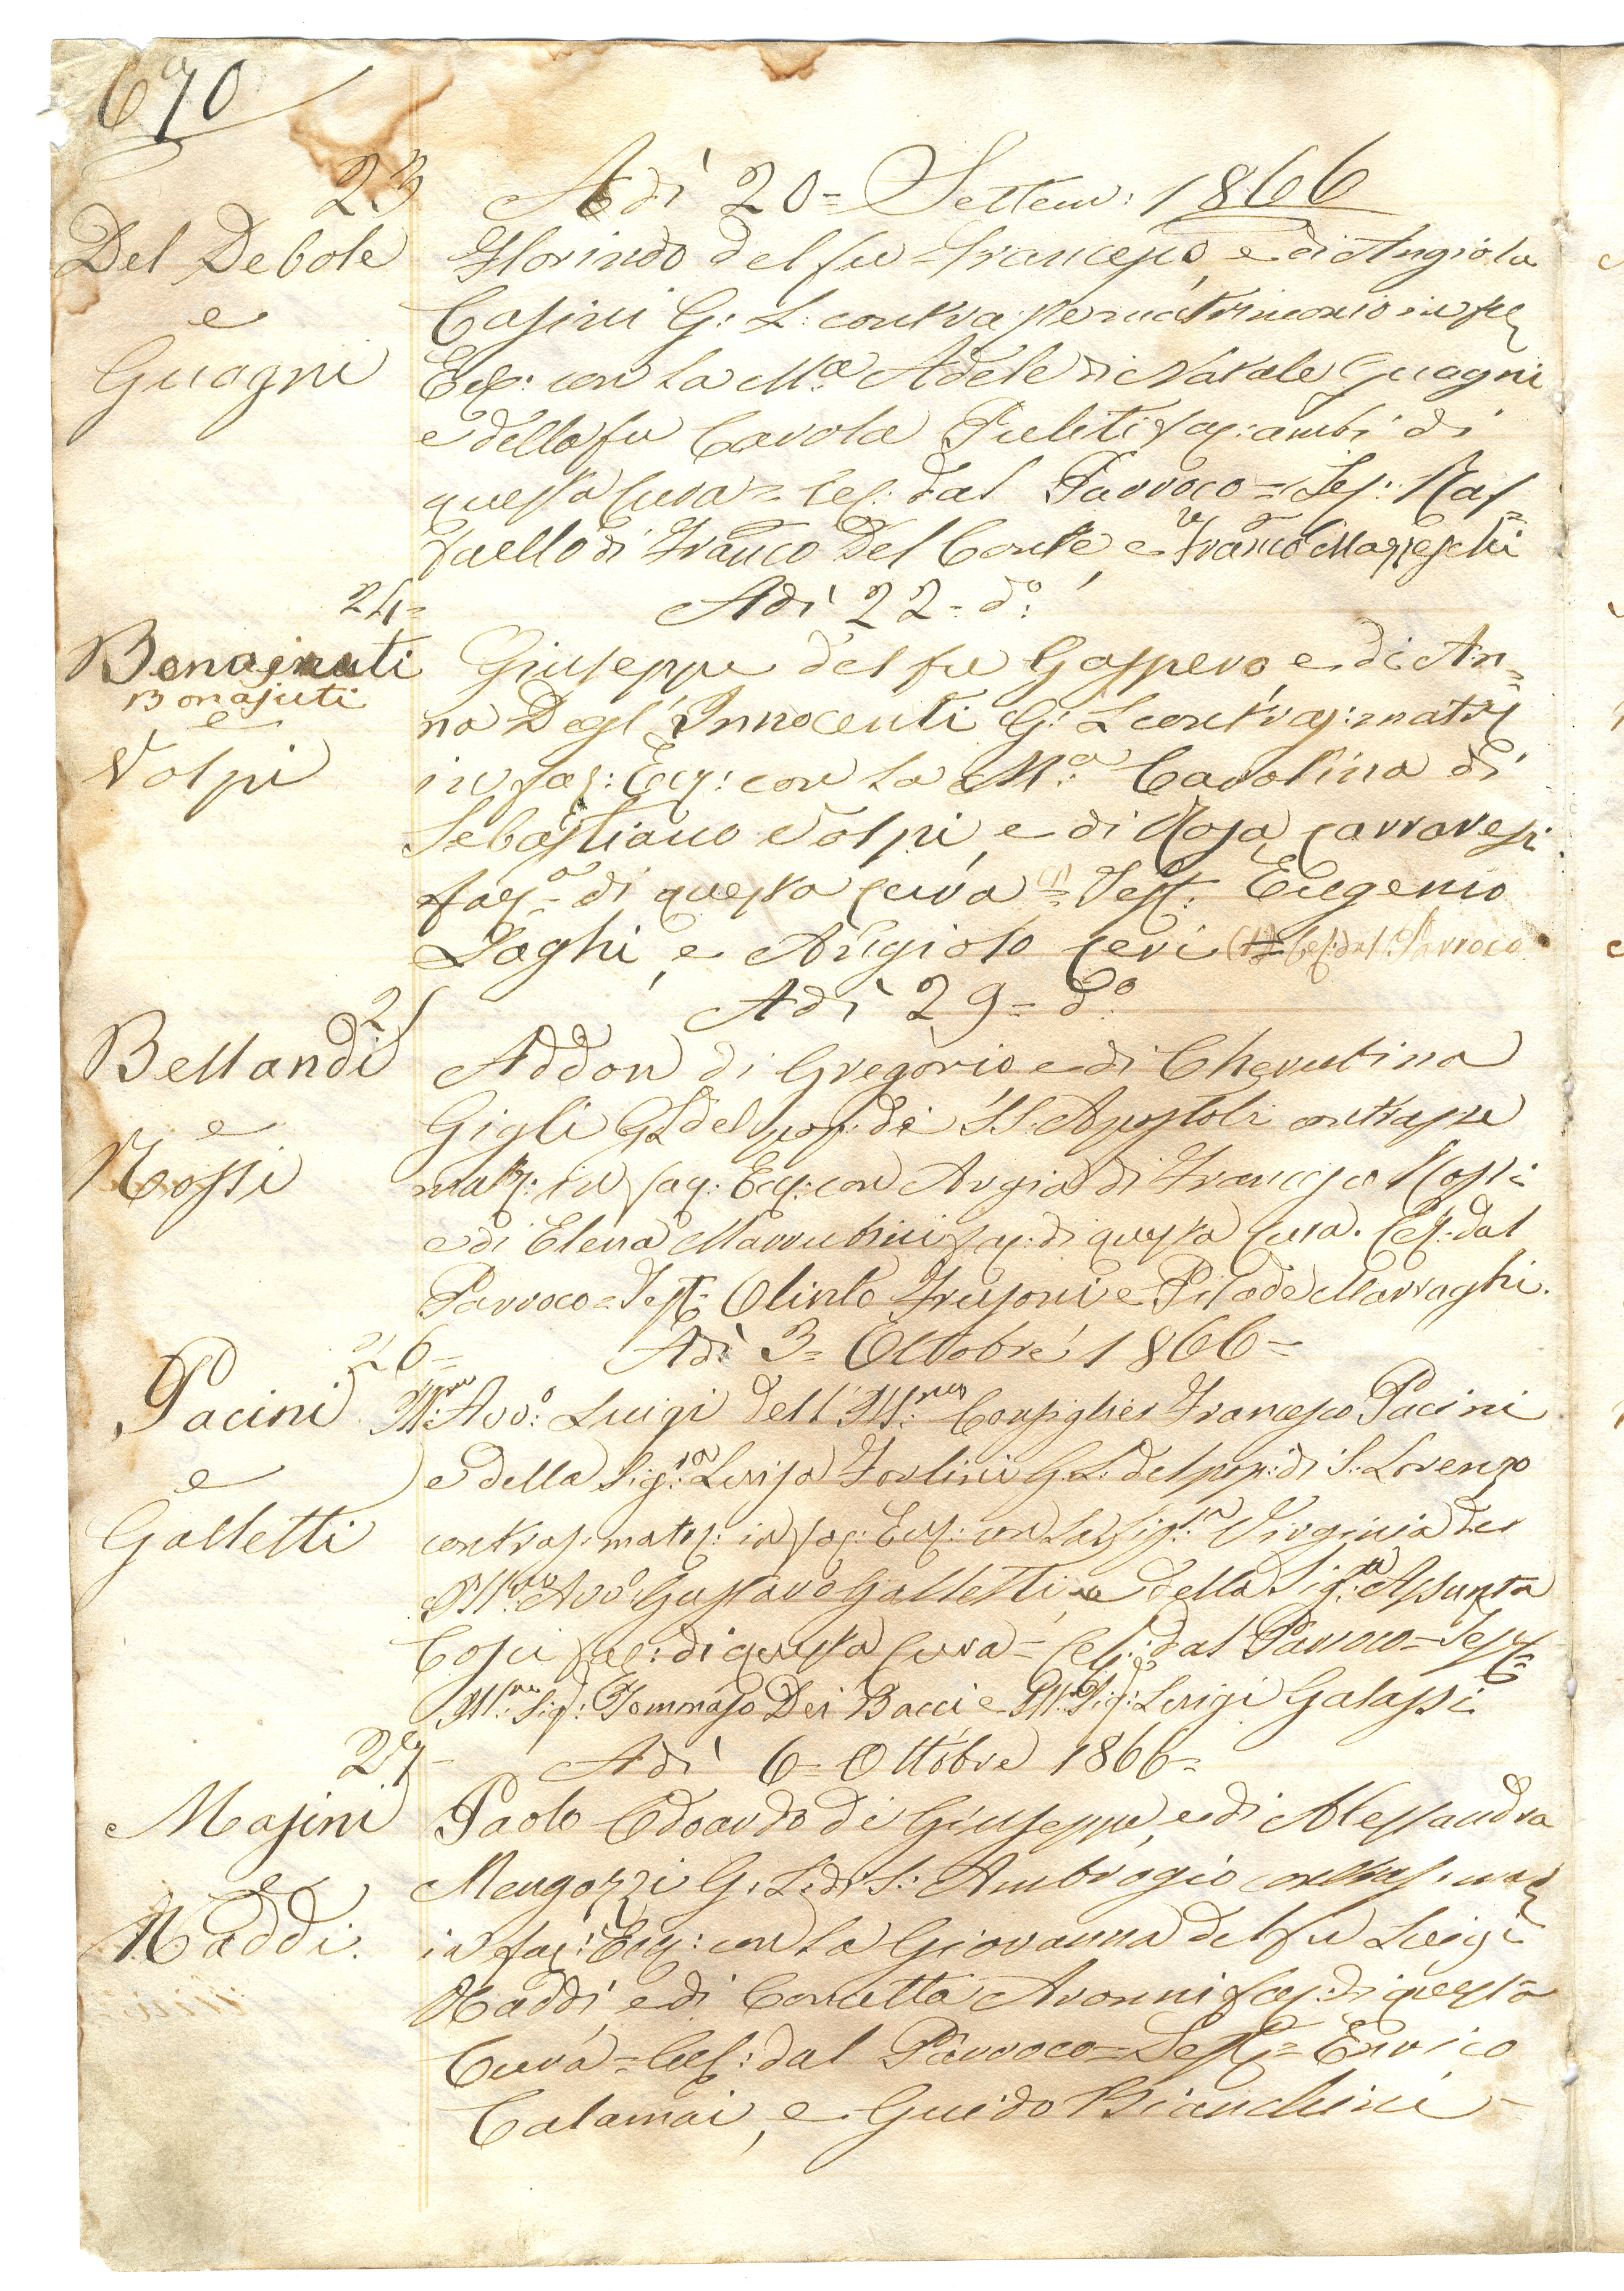 670
23 Adì 20= Settem: 1866
Del Debole
e
Guagni
Florindo del fu Francesco, e di Angiola
Casini G: L: contras: per matrimonio in fac
Ecc: con la M.a Adele di Natale Guagni
e della fu Carola Puliti fac: ambi di
questa Cura = Cel: dal Parroco = Tes: Raf=
faello di Franco Del Conte, e Franco Mazzeschi
24= Adì 22= do:
Bonajuti
Bonajuti
e
Volpi
Giuseppe del fu Gaspero, e di An=
na Degl'Innocenti G: L contras: matr
in fac: Ecc: con la M.a Carolina di
Sebastiano Volpi, e di Rosa Carraresi
fac: di questa Cura (1) = Test: Eugenio
Laghi, e Angiolo Ceri = (1) Cel: dal Parroco
25 Adì 29= do
Bellandi
e
Rossi
Addon di Gregorio e di Cherubina
Gigli GL del pop: de' SS: Apostoli contras per
matr: in fac: Ecc: con Argia di Francesco Rossi
e di Elena Marrubini fac: di questa Cura. Cel: dal
Parroco = Test= Olinto Frusoni e Pilade Marraghi.
26= Adì 3= Ottobre 1866=
Pacini
e
Galletti
Ill:mo Avvo: Luigi dell'Ill:mo Consiglier Francesco Pacini
e della Sig:ra Luisa Forlini G: L: del pop: di S: Lorenzo
contras: matr: in fac: Ecc: con la Sig:ra Virginia del
Ill:mo Avvo Gustavo Galletti, e della Sig:ra Assunta
Cosci fac: di questa Cura = Cel: dal Parroco = Test=
Ill:mo Sig: Tommaso Dei Bacci e Ill: Sig: Luigi Galassi
27= Adì 6= Ottobre 1866=
Masini
e
Naddi.
Paolo Edoardo di Giuseppe, e di Alessandra
Mengozzi G: L: di S: Ambrogio contras: mat
in fac: Ecc: con la Giovanna del fu Luigi
Naddi, e di Concetta Avonni fac: di questa
Cura = Cel: dal Parroco = Test= Enrico
Calamai, e Guido Bianchini =